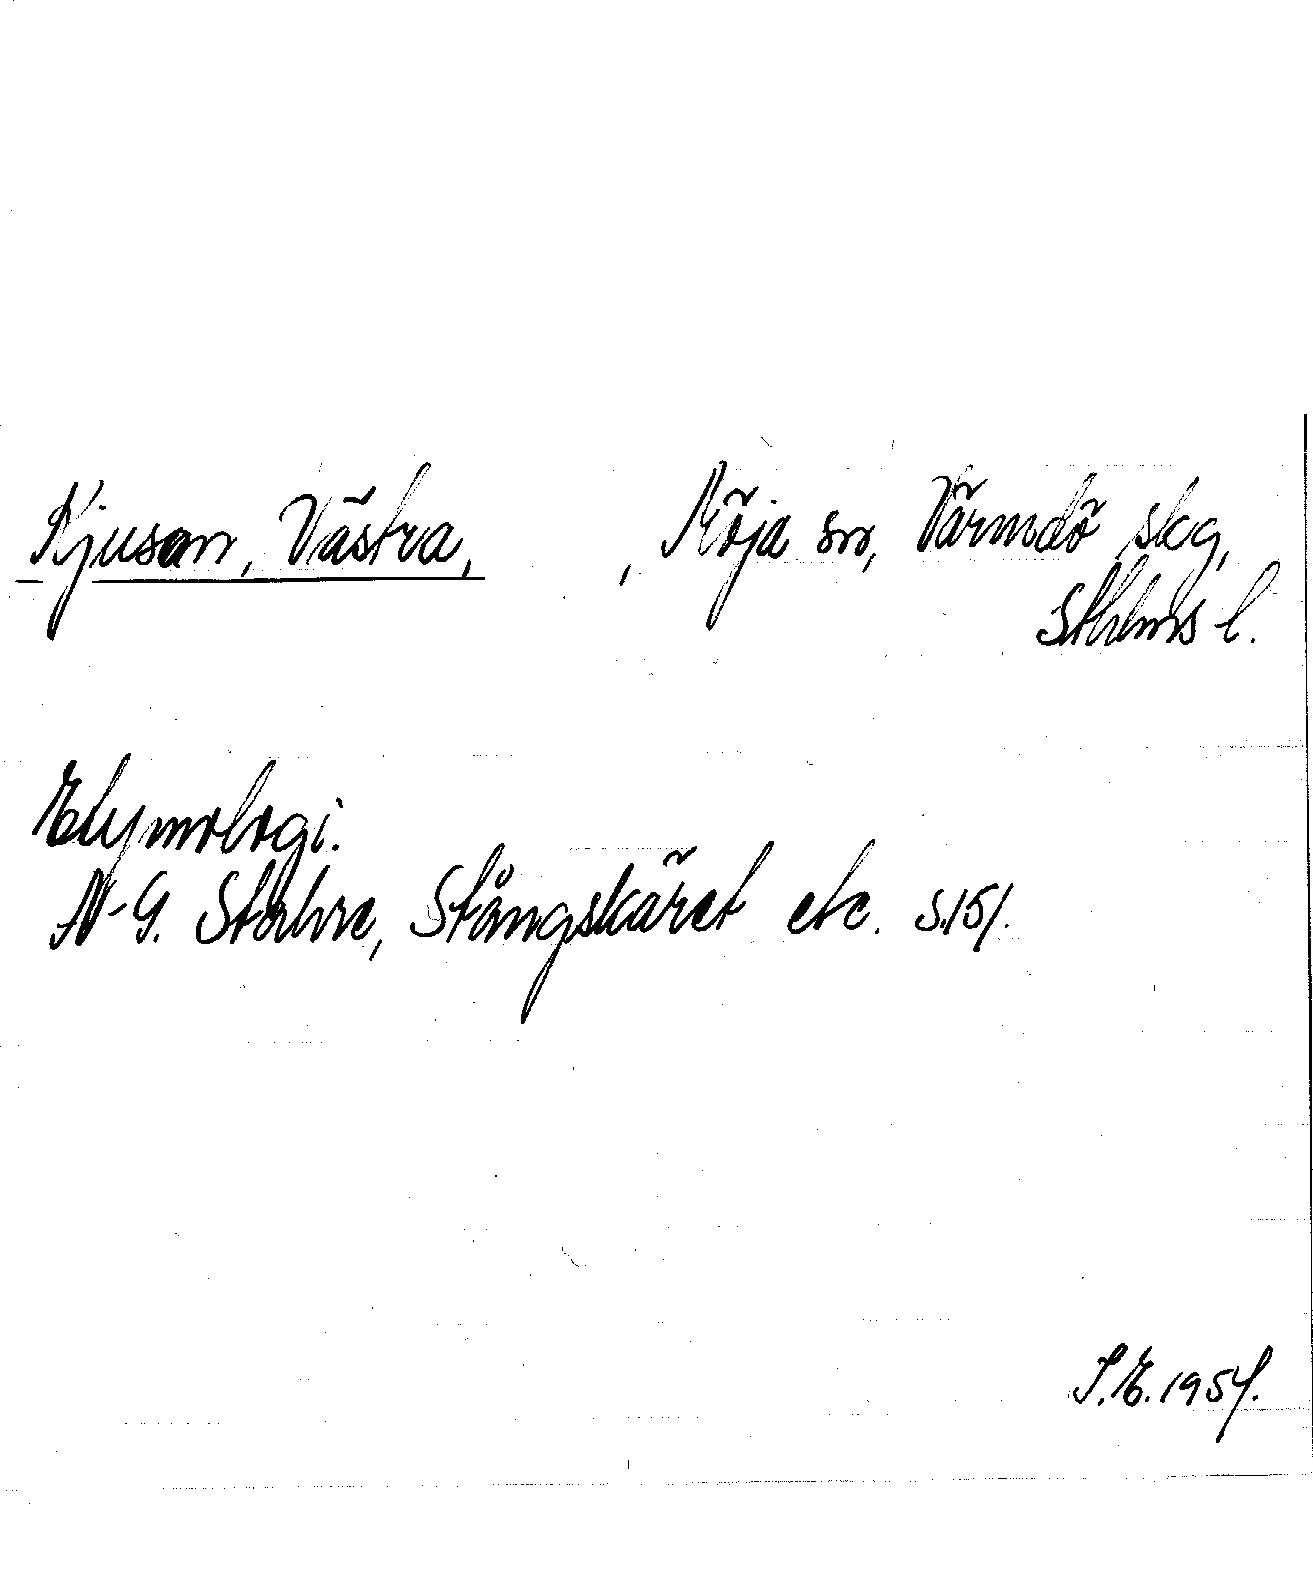 Kjusan, Västra, , Möja sn, Värmdö skg,
Sthlms l.
Etymologi.
N-G. Stahre, Stångskäret etc. s.151.
S.E. 1954.